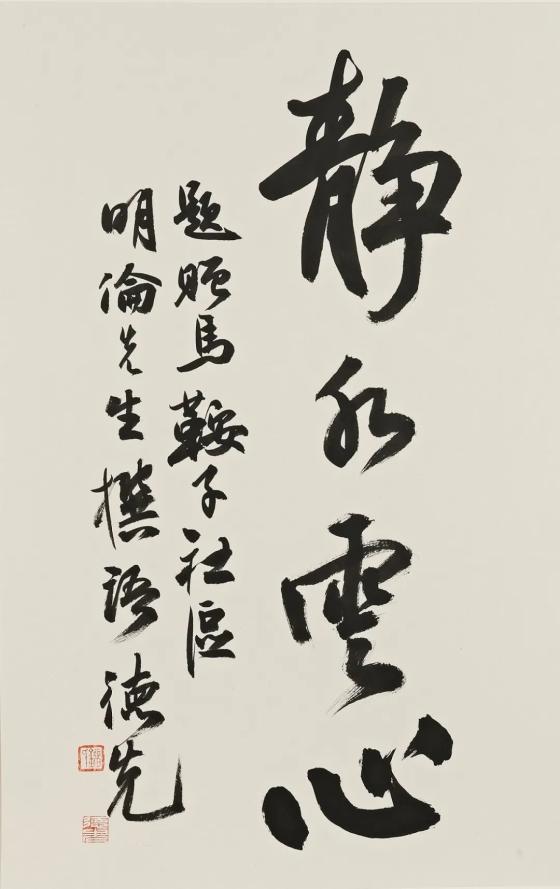 静水雲心
題贈馬鞍子社區
明倫先生撰語 德先